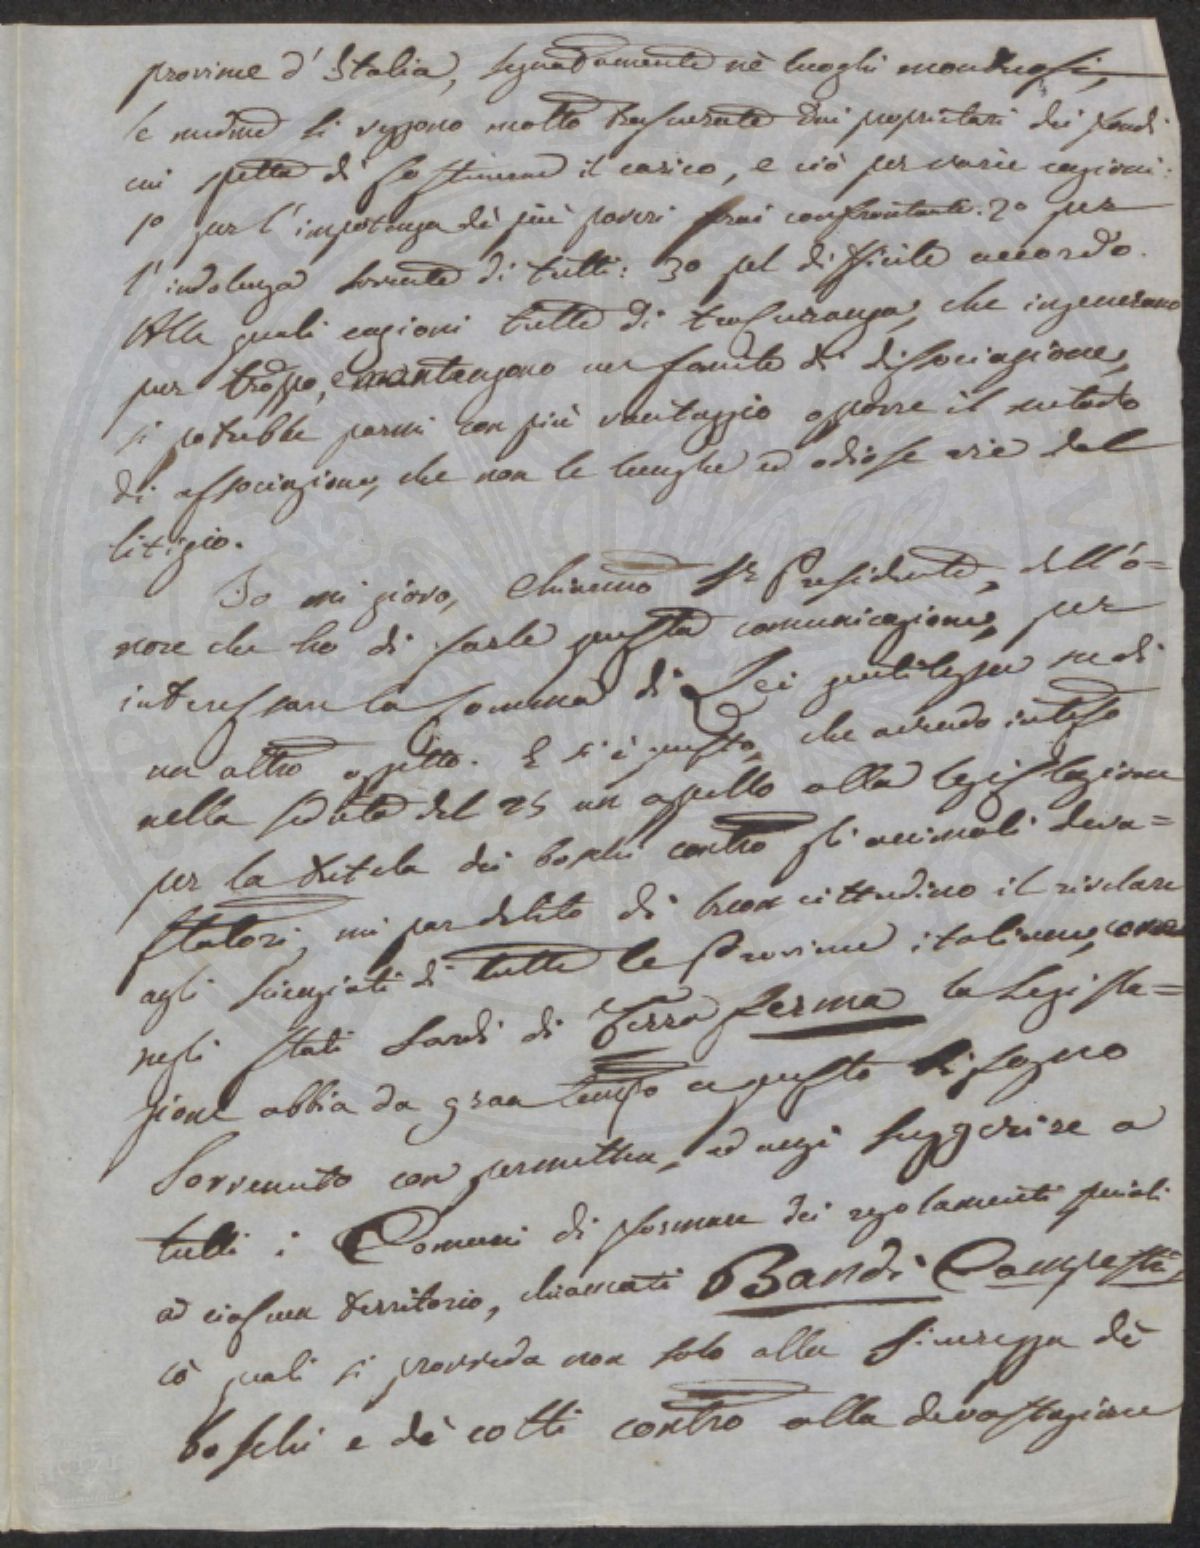 provincie d'Italia, segnatamente nè luoghi montuosi,
le medme si veggono molto trascurate dai proprietari dei fondi
cui spetta di sostenerne il carico, e ciò per varie cagioni:
1º per l'impotenza dè più poveri frai confrontanti. 2º per
l'indolenza sovente di tutti: 3º pel difficile accordo.
Alle quali cagioni tutte di trascuranza, che ingenerano
pur troppo, e mantengono un fomite di dissociazione,
si potrebbe parmi con più vantaggio opporre il metodo
di associazione, che non le lunghe ed odiose vie del
litigio.
Io mi giovo, Chiarmo Sr Presidente, dell'o=
nore che ho di farle questa comunicazione, per
interessare la somma di Lei gentilezza su di
un altro oggetto. E si è questo, che avendo inteso
nella seduta del 25 un appello alla legislazione
per la tutela dei boschi contro gli animali deva=
statori, mi par debito di buon cittadino il rivelare
agli scienziati di tutte le Provincie italiane, come
negli Stati Sardi di Terra ferma la Legisla=
zione abbia da gran tempo a questo bisogno
sovvenuto con permettere, ed anzi suggerire a
tutti i Comuni di formare dei regolamenti speciali
ad ciascun territorio, chiamati Bandi Campestri,
cò quali si provveda non solo alla sicurezza dè
boschi e dè colti contro alla devastazione